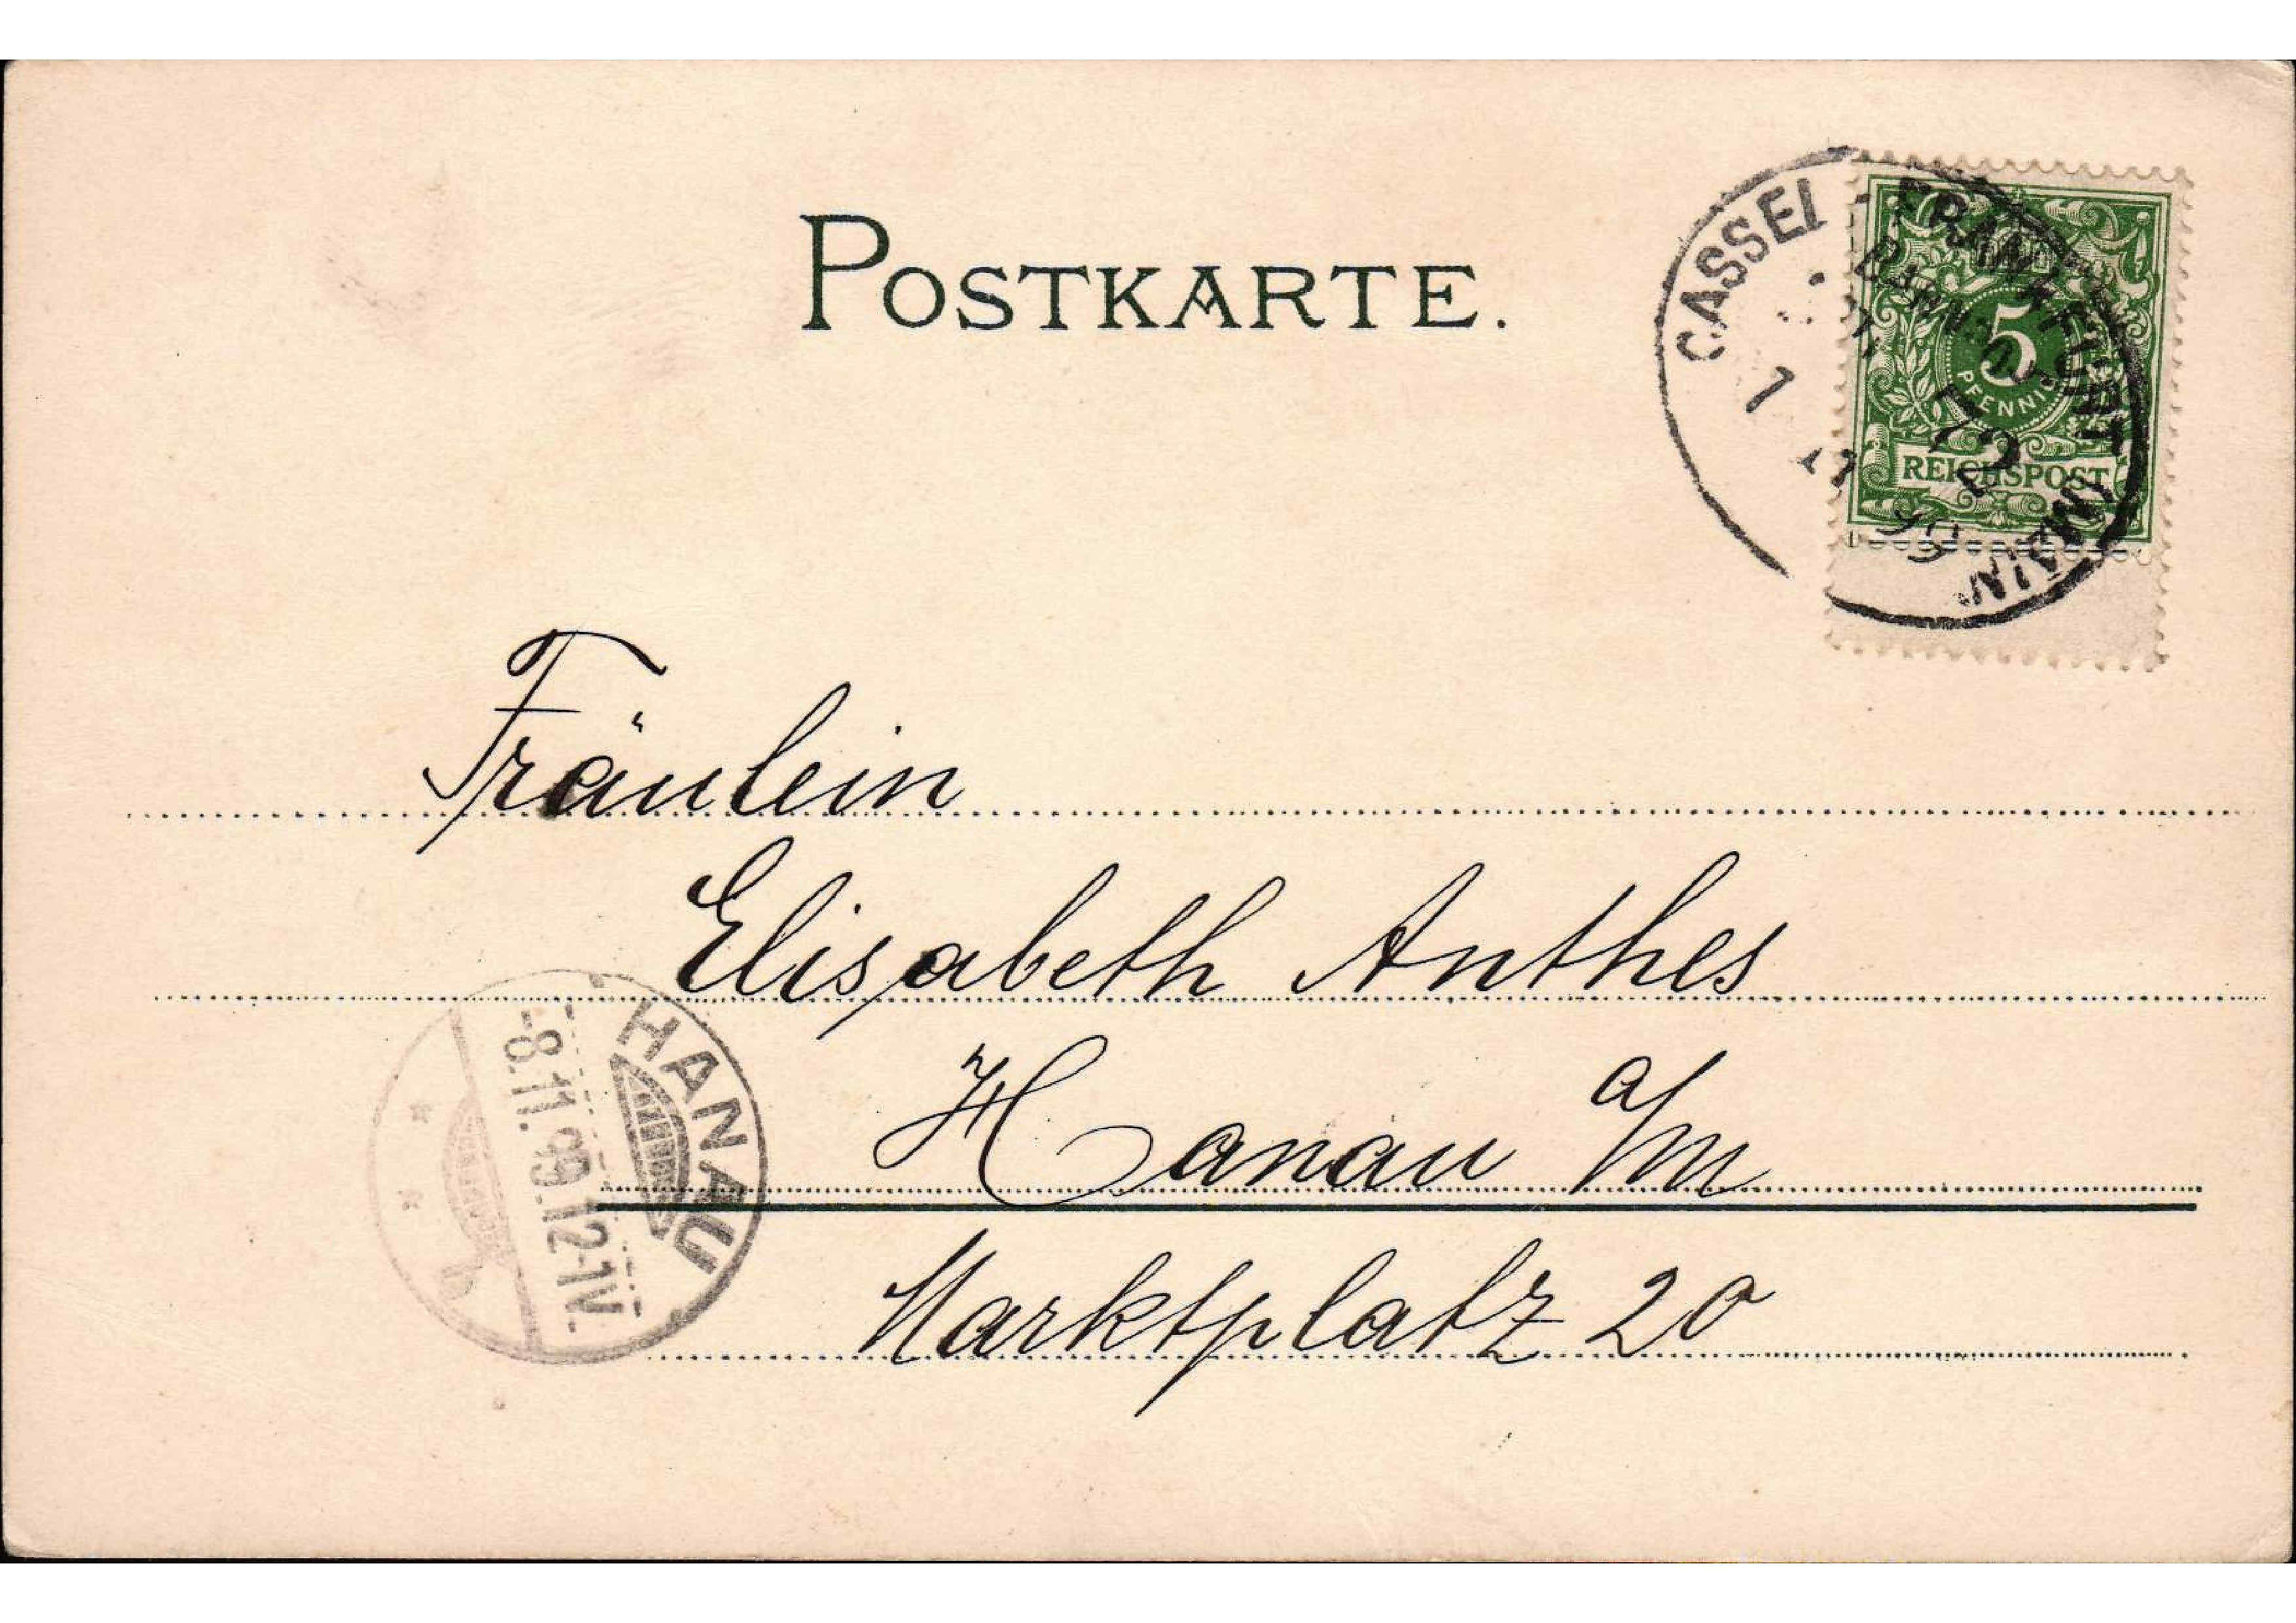 POSTKARTE.
CASSEL - FRANKFURT (MAIN)
BAHNPOST
7 11 99
5
PFENNIG
REICHSPOST
Fräulein
Elisabeth Anthes
Hanau a/M
Marktplatz 20
HANAU
-8.11.99.12-1N.
* *